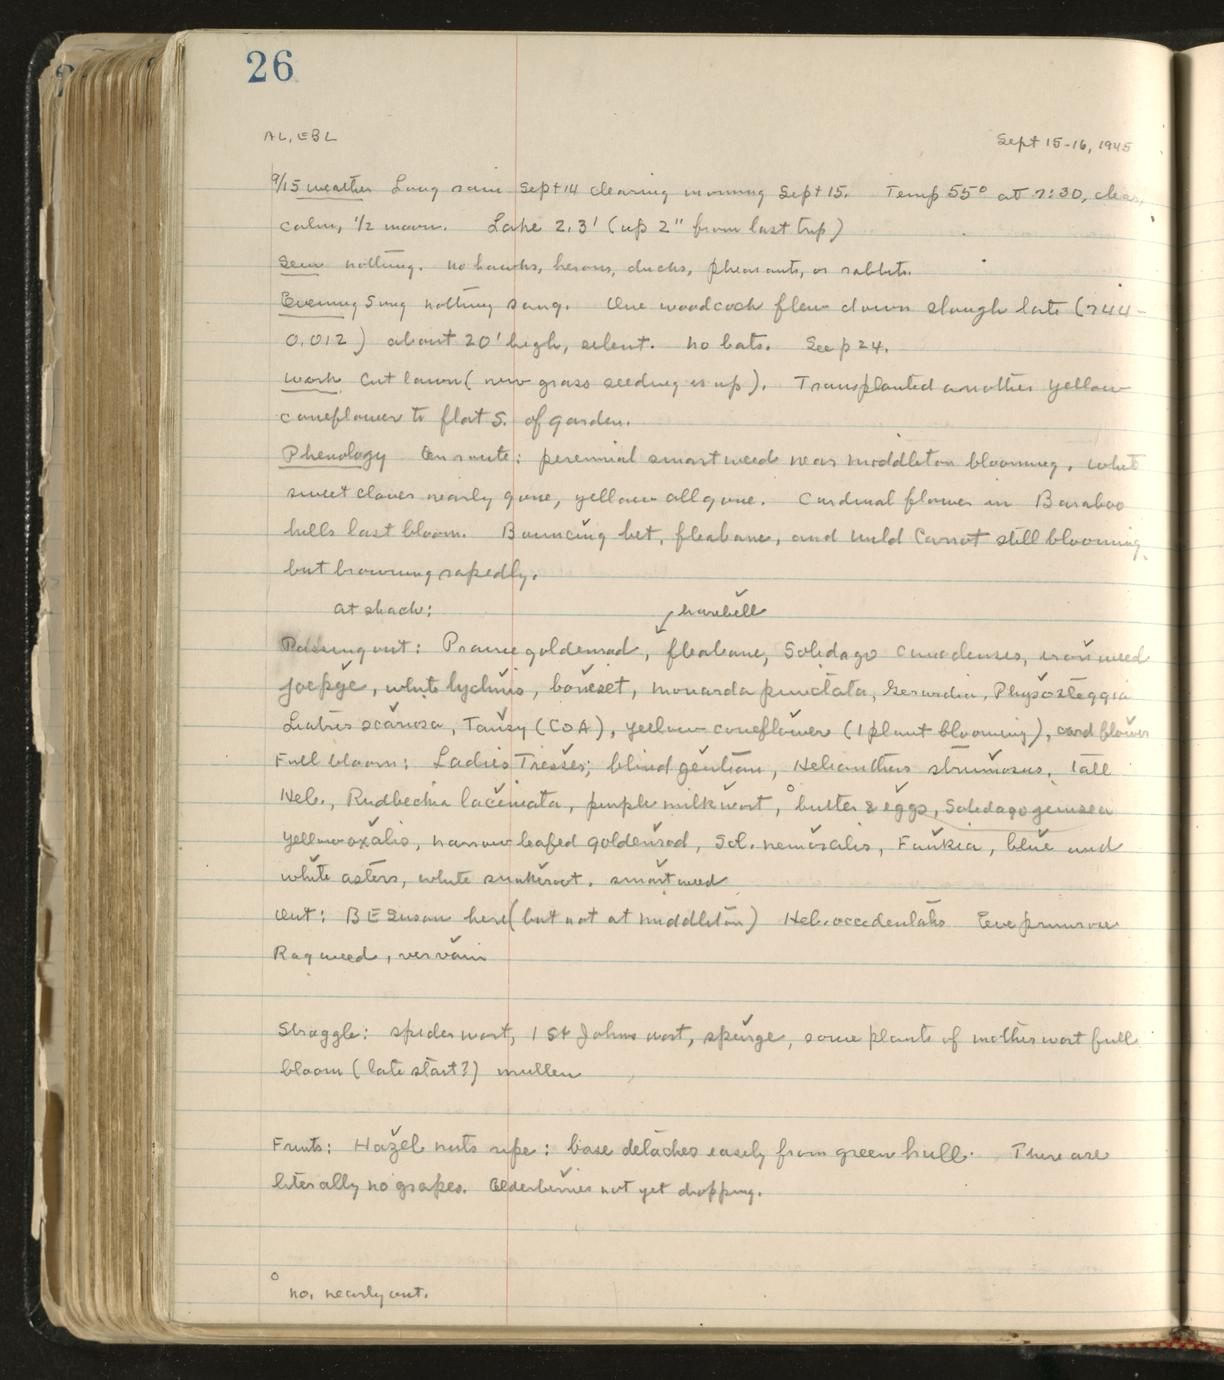 26
AL, EBL Sept 15-16, 1945
9/15 weather Long rain Sept 14 clearing morning Sept 15. Temp 55° at 7:30, clear,
calm, 1/2 moon. Lake 2.3' (up 2" from last trip)
Seen nothing. no hawks, herons, ducks, pheasants, or rabbits.
Evening Song nothing sang. One woodcock flew down slough late (744-
0.012) about 20' high, silent. No bats. See p 24.
Work Cut lawn (new grass seeding is up). Transplanted another yellow
coneflower to flat S. of garden.
Phenology En route: perennial smartweed near Middleton blooming, white
sweet clover nearly gone, yellow all gone. Cardinal flower in Baraboo
hills last bloom. Bouncing bet, fleabane, and wild carrot still blooming,
but browning rapidly.
At shack: harebell
Passing out: Prairie goldenrod, fleabane, Solidago canadensis, ironweed
joepye, white lychnis, boneset, monarda punctata, Gerardia, Physosteggia
Liatris scariosa, Tansy (COA), yellow coneflower (1 plant blooming), card flower
Full bloom: Ladies Tresses, blind gentian, Helianthus strumosus, Tall
Hel., Rudbeckia laciniata, purple milkwort, ° butter & eggs, Solidago gemsea
yellow oxalis, narrow leafed goldenrod, Sol. nemoralis, Funkia, blue and
white asters, white snakeroot, smartweed
Out: B E Susan here (but not at Middleton) Hel. occidentalis Eve primrose
Ragweed, vervain
Straggle: spiderwort, 1 St Johns wort, spurge, some plants of motherwort full
bloom (late start?) mullen
Fruits: Hazel nuts ripe: base detaches easily from green hull. There are
literally no grapes. Elderberries not yet dropping.
° no, nearly out.